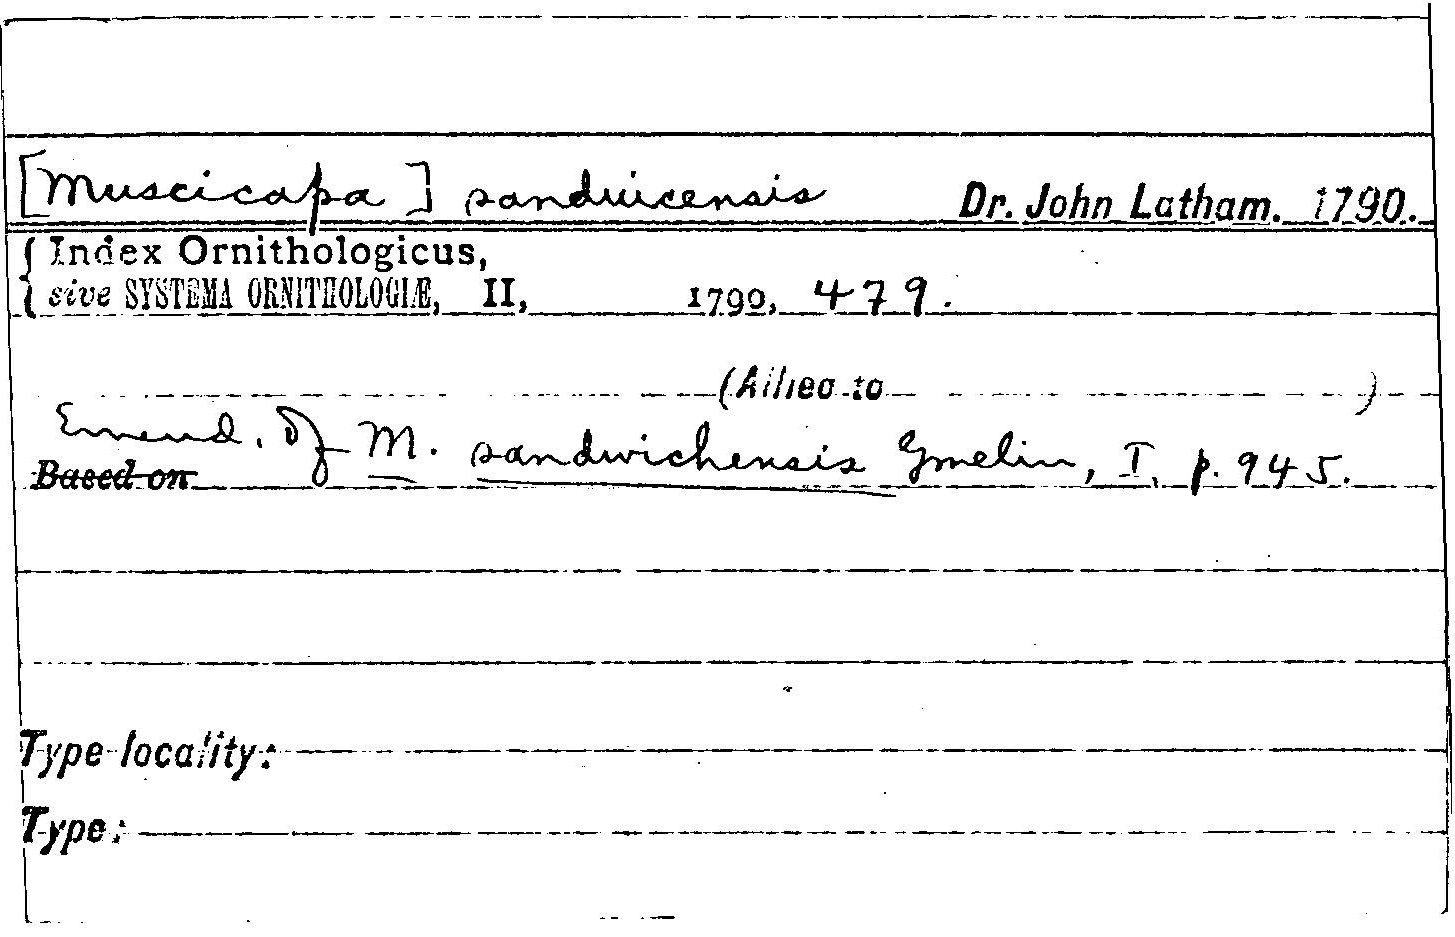 [Muscicapa] sanduicensis Dr. John Latham. 1790.
Index Ornithologicus,
sive SYSTEMA ORNITHOLOGIÆ, II, 1790, 479.
(Allied to )
Emend. Of M. sandwichensis Gmelin, I, p. 945.
Based on
Type locality:
Type: